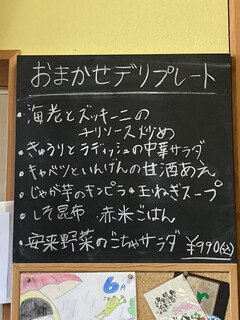 おまかせデリプレート
・海老とズッキーニの
チリソース炒め
・きゅうりとラディッシュの中華サラダ
・キャベツといんげんの甘酒あえ
・じゃが芋のキンピラ・玉ねぎスープ
・しそ昆布・赤米ごはん
・安来野菜のごちゃサラダ ¥990(込)
6月